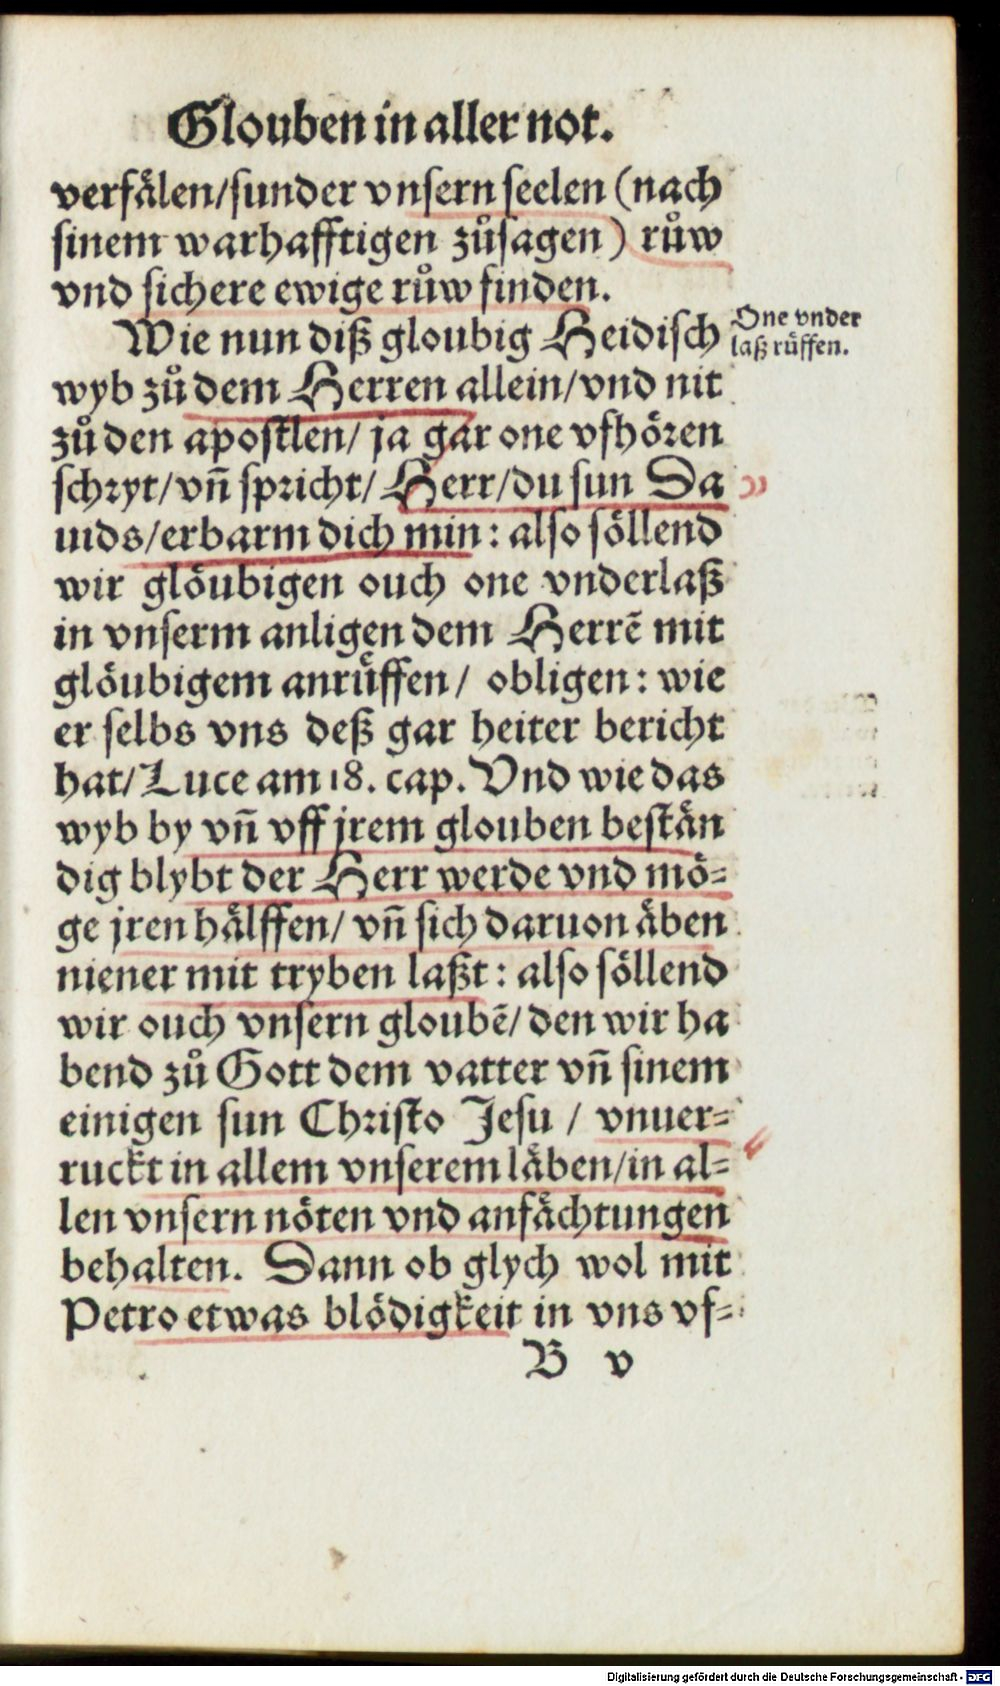 Glouben in aller not.
verfålen/sunder vnsern seelen (nach
sinem warhafftigen zůsagen) růw
vnd sichere ewige růw finden.
Wie nun diß gloubig Heidisch
One vnder
laß růffen.
wyb zů dem Herren allein/vnd nit
zů den apostlen/ ja gar one vfhören
schryt/vn̄ spricht/ Herr/du sun Da
uids/erbarm dich min: also söllend
wir glöubigen ouch one vnderlaß
in vnserm anligen dem Herrē mit
glöubigem anrůffen/ obligen: wie
er selbs vns deß gar heiter bericht
hat/Luce am 18. cap. Vnd wie das
wyb by vn̄ vff jrem glouben bestän
dig blybt der Herr werde vnd mö=
ge jren hälffen/ vn̄ sich daruon äben
niener mit tryben laßt: also söllend
wir ouch vnsern gloubē/ den wir ha
bend zů Gott dem vatter vn̄ sinem
einigen sun Christo Jesu / vnuer=
ruckt in allem vnserem läben/in al=
len vnsern nöten vnd anfächtungen
behalten. Dann ob glych wol mit
Petro etwas blödigkeit in vns vf=
B v
Digitalisierung gefördert durch die Deutsche Forschungsgemeinschaft - DFG